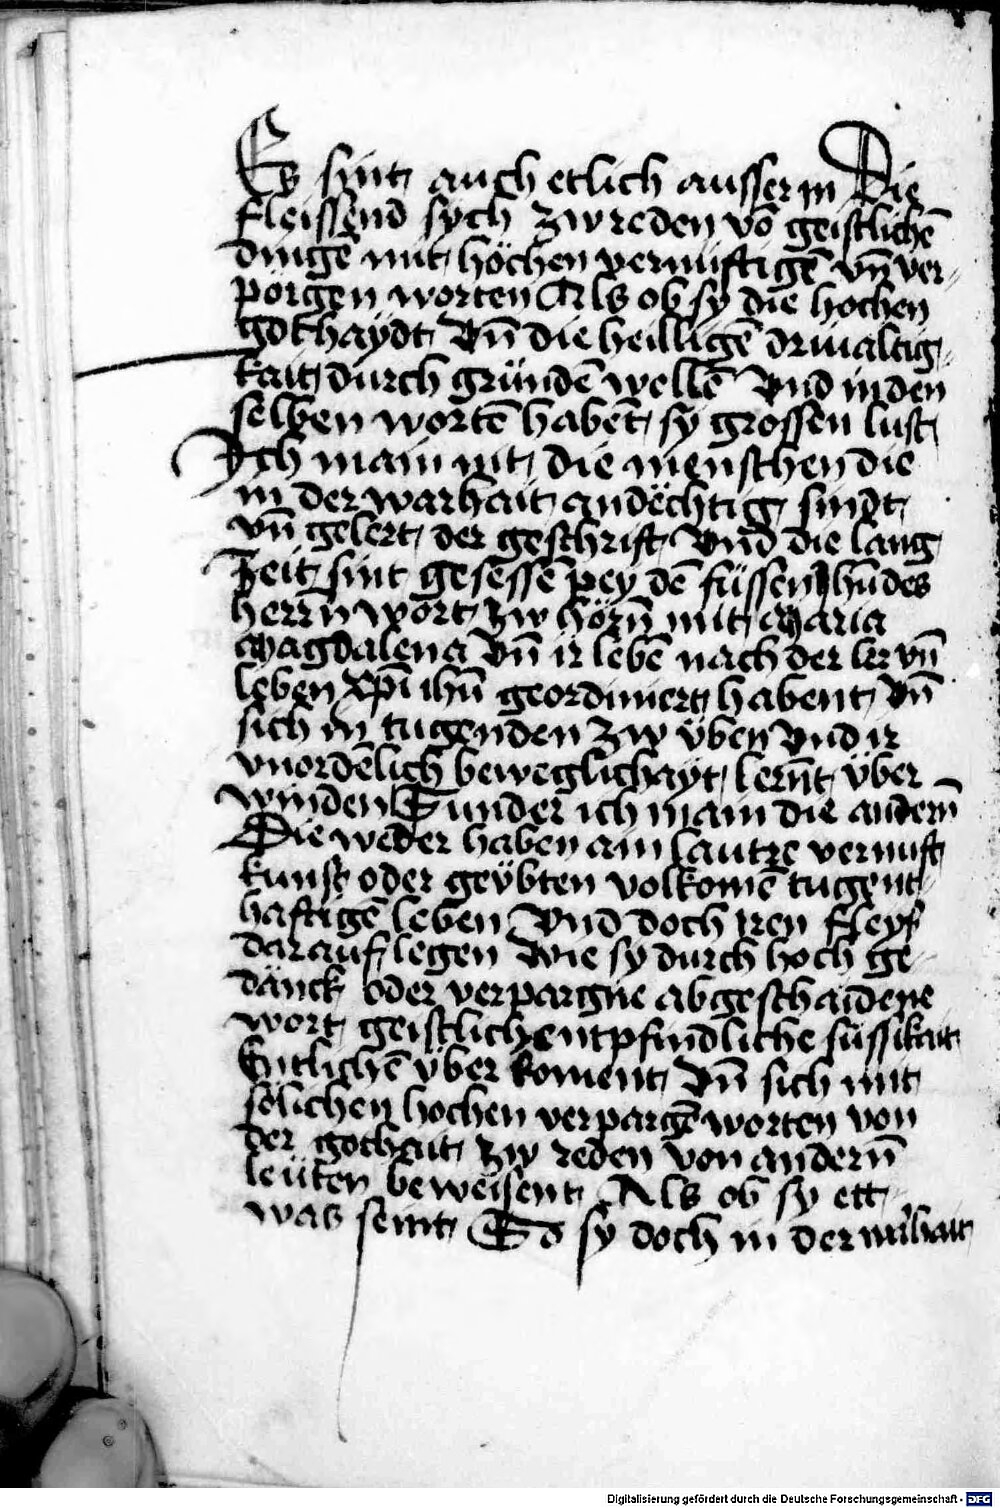 Es sint auch etlich ausser in Die
fleissend sych zw reden vō geistlichē
dingē mit höchen vernüftigē vn̄ ver-
porgen worten Als ob sy die hochen
gothaydt Vn̄ die heilligē driualtig-
kait durch gründē wellē Vnd in den
selben wortē habēt sy grossen lust
Ich main nit die menschen die
in der warhait andëchtig sindt
vn̄ gelert der geschrift Vnd die lang
Zeit sint gesessē pey dē füssen Ihū des
herrn wort zw hörn̄ mit Maria
Magdalena Vn̄ ir lebē nach der ler vn̄
leben Xp̄i ihū geordiniert habent Vn̄
sich in tugenden zw üben Vnd ir
vnordēlich beweglichayt lernt über
winden Sunder ich main die andern̄
Die weder haben ain lautre vernuft
kunst oder geübten volkomē tugent-
haftigē leben Vnd doch iren fleyß
darauf legen Wie sy durch hoch ge-
dänck oder verpargne abgeschaidene
wort geistlich entpfindliche süssikait
Entlichē über koment Vn̄ sich mit
sölichen hochen verpargē worten von
der gothait zw reden von andern̄
leüten beweisent Als ob sy ett-
was seint So sy doch in der warhait